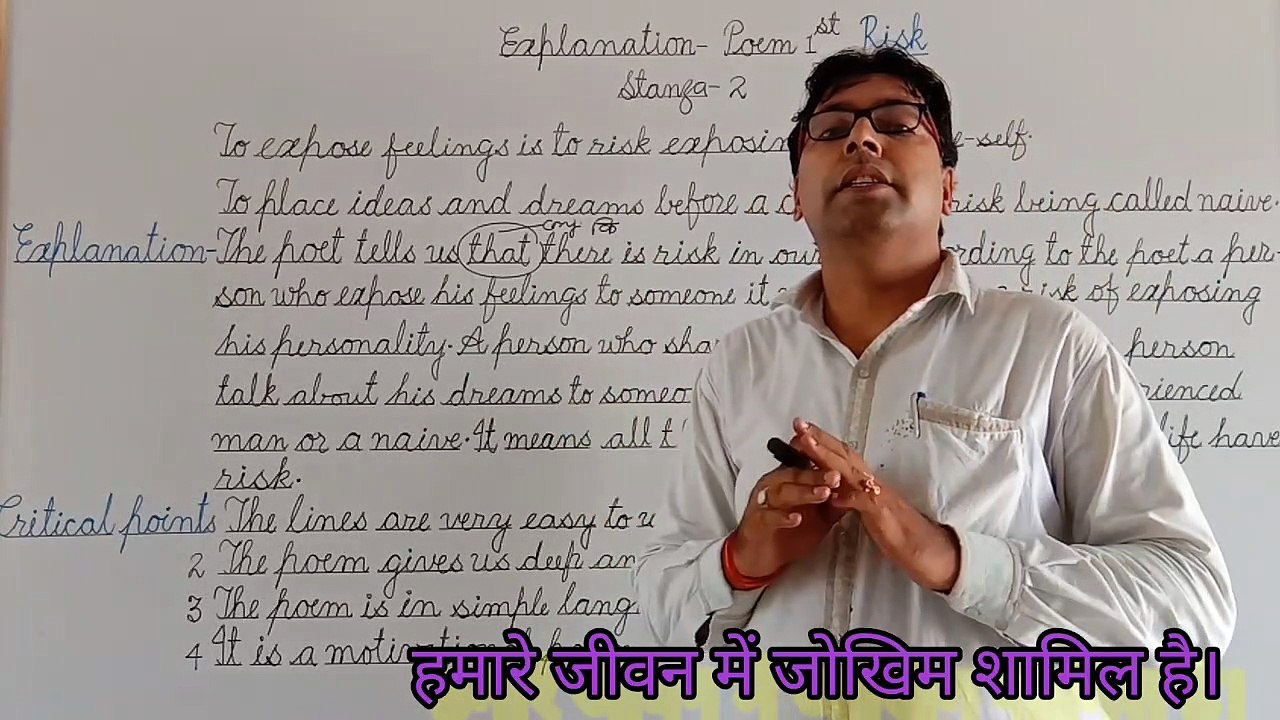 Explanation- Poem 1st Risk
Stanza- 2
To expose feelings is to risk exposin -self.
To place ideas and dreams before a risk being called naive.
Explanation- The poet tells us that there is risk in our to the poet a per-
son who expose his feelings to someone it risk of exposing
his personality. A person who sha person
talk about his dreams to someo rienced
man or a naive. It means all t life have
risk.
Critical points The lines are very easy to u
2 The poem gives us deep an
3 The poem is in simple lang
4 It is a
हमारे जीवन में जोखिम शामिल है।